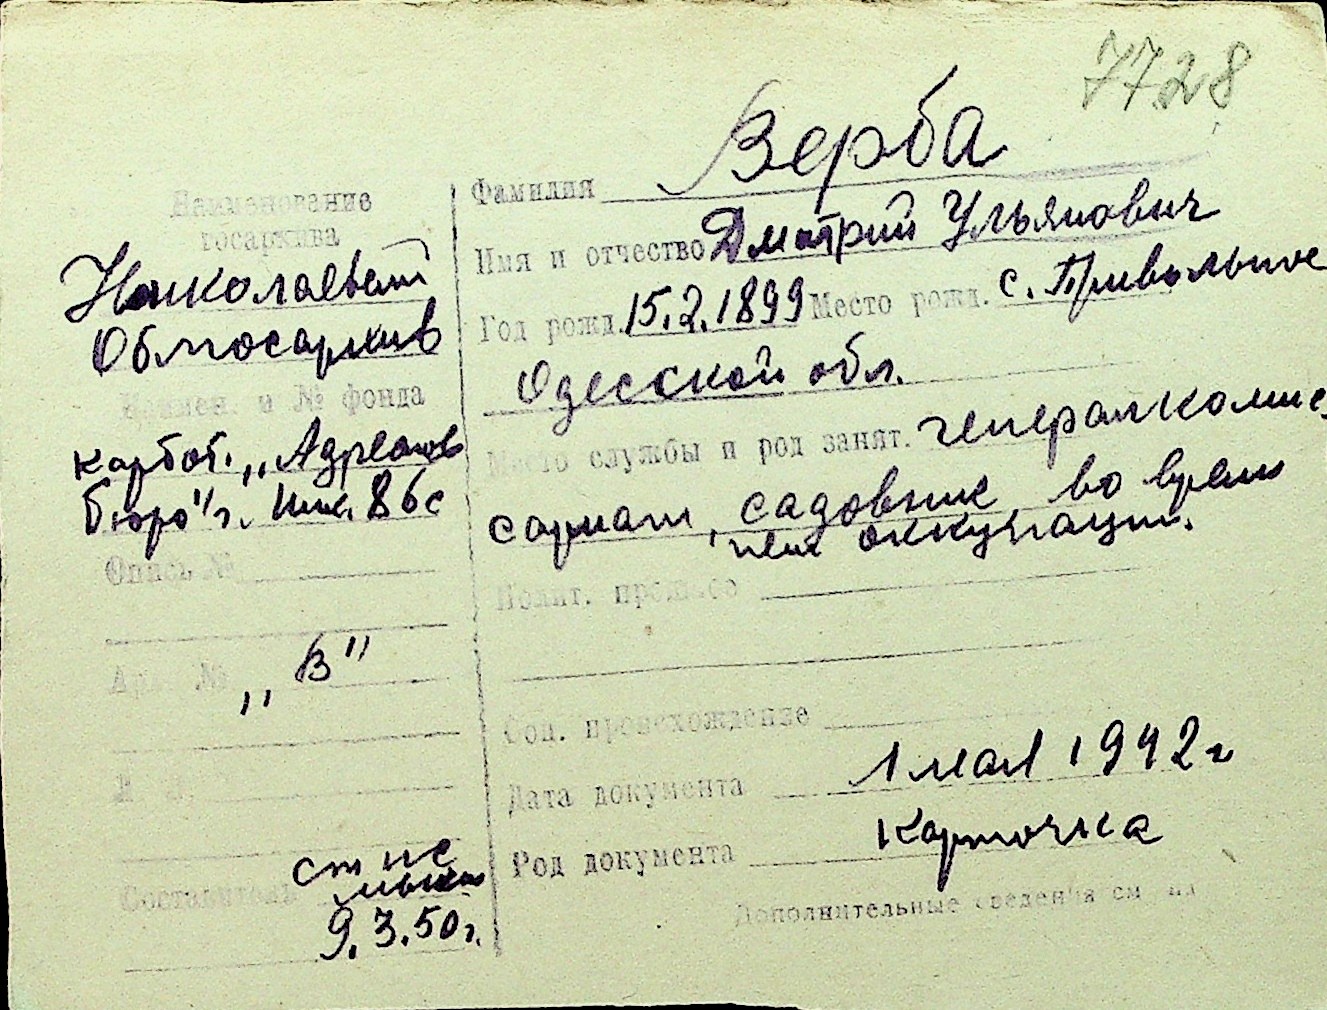 7728
Наименование
госархива
Николаевский
Облгосархив
Наимен. и № фонда
карбоб. „Адресное
бюро" г. Ник. 86с
Опись №
Арх. №
„В"
Составитель
9.3.50г.
Фамилия Верба
Имя и отчество Дмитрий Ульянович
Год рожд. 15.2.1899 Место рожд. с. Привольное
Одесской обл.
Место службы и род занят. генералкомис
сариат, садовник во время
нем оккупации.
Полит. прошлое
Соц. происхождение
Дата документа 1 мая 1942 г
Род документа Карточка
Дополнительные сведения см. на